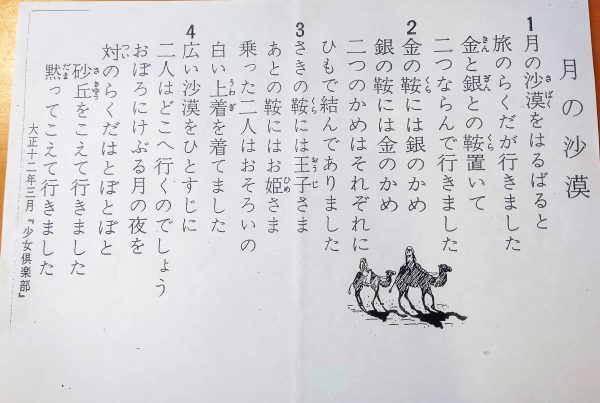 月の沙漠
1 月の沙漠をはるばると
旅のらくだが行きました
金と銀との鞍置いて
二つならんで行きました
2 金の鞍には銀のかめ
銀の鞍には金のかめ
二つのかめはそれぞれに
ひもで結んでありました
3 さきの鞍には王子さま
あとの鞍にはお姫さま
乗った二人はおそろいの
白い上着を着てました
4 広い沙漠をひとすじに
二人はどこへ行くのでしょう
おぼろにけぶる月の夜を
対のらくだはとぼとぼと
砂丘をこえて行きました
黙ってこえて行きました
大正十二年三月『少女倶楽部』